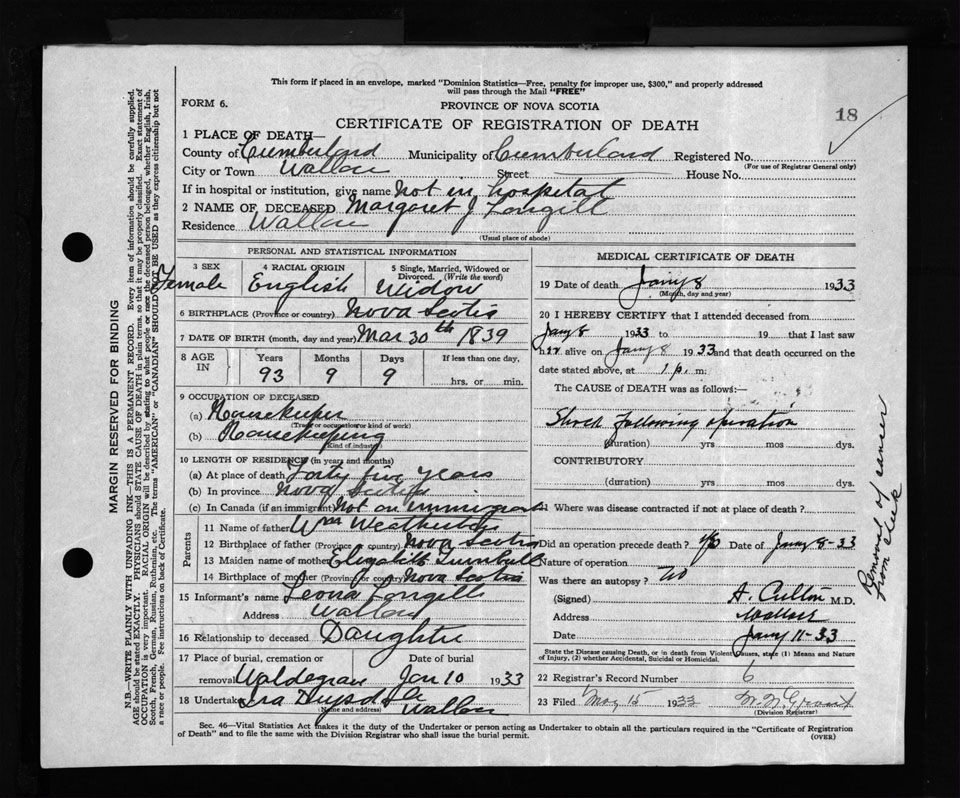 This form if placed in an envelope, marked "Dominion Statistics—Free, penalty for improper use, $300," and properly addressed
will pass through the Mail "FREE"
FORM 6.
PROVINCE OF NOVA SCOTIA
18
CERTIFICATE OF REGISTRATION OF DEATH
1 PLACE OF DEATH—
County of Cumberland Municipality of Cumberland Registered No.
(For use of Registrar General only)
City or Town Wallace Street House No.
If in hospital or institution, give name Not in hospital
2 NAME OF DECEASED Margaret J Langill
Residence Wallace
(Usual place of abode)
PERSONAL AND STATISTICAL INFORMATION
3 SEX 4 RACIAL ORIGIN 5 Single, Married, Widowed or
Divorced. (Write the word)
Female English Widow
6 BIRTHPLACE (Province or country) Nova Scotia
7 DATE OF BIRTH (month, day and year) Mar 30th 1839
8 AGE IN Years Months Days If less than one day,
93 9 9 hrs. or min.
9 OCCUPATION OF DECEASED
(a) Housekeeper
(Trade or occupation or kind of work)
(b) Housekeeping
(Kind of industry)
10 LENGTH OF RESIDENCE (in years and months)
(a) At place of death Forty five years
(b) In province Nova Scotia
(c) In Canada (if an immigrant) Not an immigrant
Parents
11 Name of father Wm Weatherbie
12 Birthplace of father (Province or country) Nova Scotia
13 Maiden name of mother Elizabeth Turnbull
14 Birthplace of mother (Province or country) Nova Scotia
15 Informant's name Leona Langill
Address Wallace
16 Relationship to deceased Daughter
17 Place of burial, cremation or Date of burial
removal Waldegrave Jan 10 1933
18 Undertaker Ira Drysdale
Wallace
MEDICAL CERTIFICATE OF DEATH
19 Date of death Jany 8 1933
(Month, day and year)
20 I HEREBY CERTIFY that I attended deceased from
Jany 8 1933 to 19 that I last saw
her alive on Jany 8 1933 and that death occurred on the
date stated above, at 1 p. m.
The CAUSE OF DEATH was as follows:—
Shock following operation
(duration) yrs mos dys.
CONTRIBUTORY
(duration) yrs mos dys.
21 Where was disease contracted if not at place of death?
Did an operation precede death? Date of Jany 8-33
Nature of operation
Removal of cancer
from cheek
Was there an autopsy? No
(Signed) M.D.
Address Wallace
Date Jany 11-33
State the Disease causing Death, or in death from Violent Causes, state (1) Means and Nature
of Injury, (2) whether Accidental, Suicidal or Homicidal.
22 Registrar's Record Number 6
23 Filed 15 1933
(Division Registrar)
Sec. 46—Vital Statistics Act makes it the duty of the Undertaker or person acting as Undertaker to obtain all the particulars required in the "Certificate of Registration
of Death" and to file the same with the Division Registrar who shall issue the burial permit.
(OVER)
MARGIN RESERVED FOR BINDING
N.B.—WRITE PLAINLY WITH UNFADING INK—THIS IS A PERMANENT RECORD. Every item of information should be carefully supplied.
AGE should be stated EXACTLY. PHYSICIANS should STATE CAUSE OF DEATH in plain terms, so that it may be properly classified. Exact statement of
OCCUPATION is very important. RACIAL ORIGIN will be described by stating to what people or race the deceased person belonged, whether English, Irish,
Scotch, French, German, Russian, Ruthenian, etc. The terms "AMERICAN" or "CANADIAN" SHOULD NOT BE USED as they express citizenship but not
a race or people. See instructions on back of Certificate.